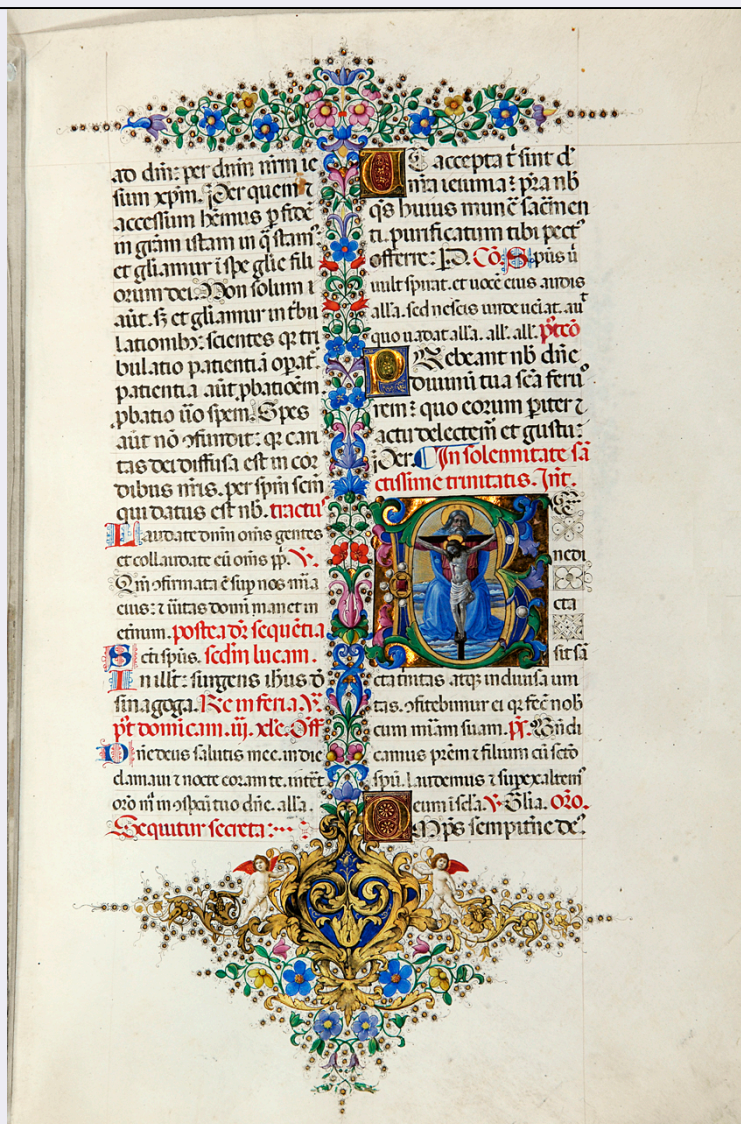 ad dm̄: per dnm̄ nr̄m ie
sum xp̄m. Per quem ⁊
accessum hēmus ꝑ fidē
in grām istam in q̄ stam᷒
et gl̄iamur ī spe glīe fili
orum dei. Non solum ī
aūt. sꝫ et gl̄iamur in tr̄bu
lationibꝫ: scientes qꝛ tri
bulatio patientiā oꝑat᷒
patientia aūt ꝓbatioēm
ꝓbatio ūo spem. Spes
aūt nō ꝯfundit: qꝛ cari
tas dei diffusa est in cor
dibus nr̄is. per spm̄ scm̄
qui datus est nb̄. tractus
Laudate dnm̄ om̄s gentes
et collaudate eū om̄s pp̄. V᷒.
Qm̄ ꝯfirmata ē suꝑ nos mīa
eius: ⁊ ūitas domī manet in
et̄num. postea dr̄ sequentia
Sc̄ti sp̄us. scd̄m lucam.
In ill't: surgens ih̄us d̄
sinagoga. Re in feria V᷒.
p̄t domīcam. iii. xl'e. Off'
Dn̄e deus salutis mee. in die
clamaui ⁊ nocte coram te. intret
orō m̄ in ꝯspc̄u tuo dn̄e. all'a.
Sequitur secreta:
UT accepta t̄ sint d̄
nīa ieiunia: p̄ra nb̄
q̄s huius mun̄e sac̄men
ti. purificatum tibi pect᷒
offerre: P. D. Cō. Sp̄us ū
uult spirat. et uocē eius audis
all'a. sed nescis unde ueīat. aut
quo uadat all'a. all'. all'. p᷒tcō
PRebeant nb̄ dn̄e
diuinū tua sc̄a feru
rem: quo eorum pit̄er ⁊
actu delectem᷒ et gustu:
Per. In solemnitate sā
ctissime trinitatis. Int̄.
BE
nedi
cta
sit sā
cta tn̄itas. atqꝫ indiuisa uni
tas. ꝯfitebimur ei qꝛ fec̄ nob̄
cum mīam suam. Ps̄. Bn̄di
camus pr̄em ⁊ filium cū sc̄tō
spū. laudemus ⁊ suꝑexaltem᷒
eum ī sc̄la. V᷒. Glīa. Orō.
OMps̄ sempit̄ne de᷒